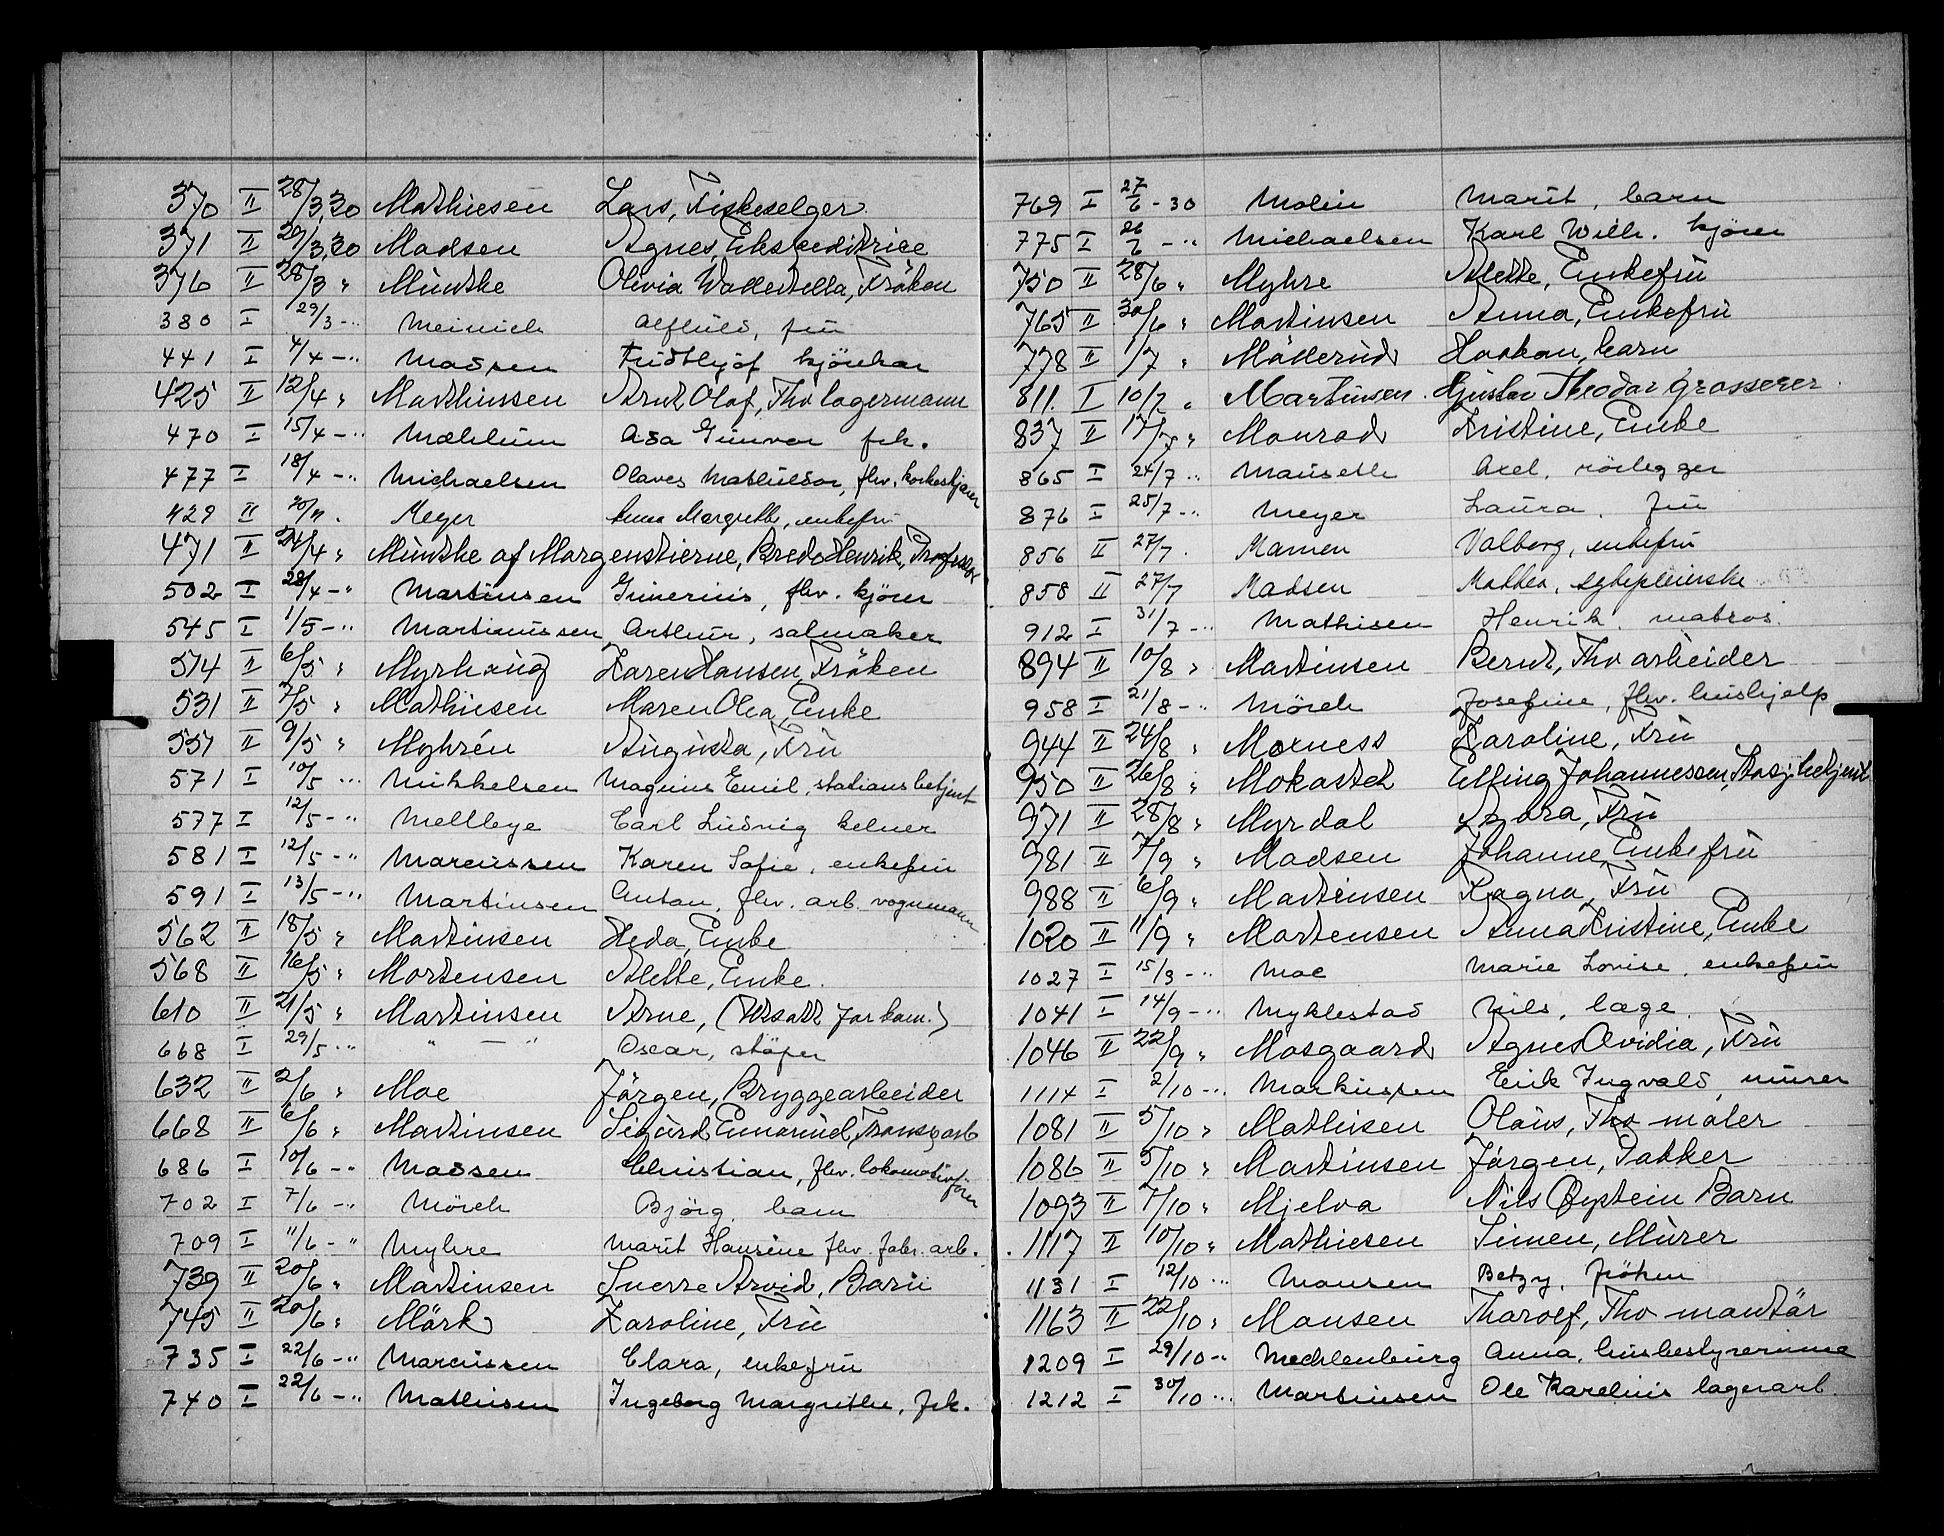 370 II 28/3,30 Mathiesen Lars, Fiskeselger
371 II 29/3,30 Madsen Agnes, Ekspeditrice
376 II 28/3 " Münthe Olivia Wallestella, Fröken
380 I 29/3 -" Meinich Alfhild, fru
441 I 4/4 -" Madsen Fridthjof kjörekar
425 II 12/4 " Marthinssen Arnt Olaf, Fhv lagermann
470 I 15/4 -" Mæhlum Asa Gunvor frk.
477 I 18/4 -" Michaelsen Olaves Mathildor, fhv.
429 II 20/4. Meyer Anna Margrethe, enkefru
471 II 24/4 " Münthe af Morgenstierne, Bredo Henrik, Professor
502 I 28/4 -" Martinsen Grinerius, fhv. kjörer
545 I 1/5 -" Martinussen Arthur, salmaker
514 II 6/5 " Myrhaug Karen Hansen, Fröken
531 II 7/5 " Mathiesen Maren Olea, Enke
551 II 9/5 " Myhrén Augusta, Fru
571 I 10/5 -" Mikkelsen Magnus Emil, stationsbetjent
577 I 12/5 -" Mellbye Carl Ludvig kelner
581 I 12/5 -" Marcussen Karen Sofie, enkefru
591 I 13/5 -" Martinsen Anton, fhv. arb. vognmann
562 II 18/5 " Martinsen Heda, Enke
568 II 16/5 " Mortensen Alette, Enke.
610 II 21/5 " Martinsen Arne, (Utsatt forkom.)
668 I 29/5 -" " — " Oscar, stöper
632 II 2/6 " Moe Jörgen, Bryggearbeider
668 II 6/6 " Martinsen Sigurd Emanuel, Transp arb
686 I 10/6 -" Madsen Christian, fhv. lokomotivfører
702 I 7/6 -" Mörch Bjørg, barn
709 I 11/6 -" Myhre Marit Hansine fhv. fabr. arb.
739 II 20/6 " Martinsen Sverre Arvid, Barn
745 II 20/6 " Mörk Karoline, Fru
735 I 22/6 -" Marcussen Clara, enkefru
740 I 22/6 -" Mathisen Ingeborg Margrethe, frk.
769 I 27/6 - 30 Molin Marit, barn
775 I 26/6 -" Michaelsen Karl Wilh. kjörer
750 II 28/6 " Myhre Alette, Enkefru
765 II 30/6 " Martinsen Anna, Enkefru
778 II 1/7 " Möllerud Haakon, barn
811. I 10/7 " Martinsen. Gustav Theodor grosserer.
837 II 17/7 " Monrad Kristine, Enke
865 I 24/7 -" Mauseth Axel, rörlegger
876 I 25/7 -" Meyer Laura, fru
856 II 27/7. Mamen Valborg, enkefru
858 II 27/7 Madsen Mathea, sykepleierske
912 I 31/7 -" Mathisen Henrik, matros
894 II 10/8 " Martinsen Bernt, Fhv arbeider
958 I 21/8 -" Mörch Josefine, fhv. hushjelp
944 II 24/8 " Moxness Karoline, Fru
950 II 26/8 " Mokastet Elling Johannessen, Stasj.betjent
971 II 28/8 " Myrdal Thora, Fru
981 II 7/9 " Madsen Johanne, Enkefru
988 II 6/9 " Martinsen Ragna, Fru
1020 II 11/9 " Mortensen Anna Kristine, Enke
1027 I 15/3 -" Moe Marie Lovise, enkefru
1041 I 14/9 -" Myklestad Nils, læge.
1046 II 22/9 " Mosgaard Agnes Ovidia, Fru
1114 I 2/10 -" Markussen Erik Ingvald, murer
1081 II 5/10 " Mathisen Olaus, Fhv maler
1086 II 5/10 " Martinsen Jörgen, Pakker
1093 II 7/10 " Mjelva Nils Øystein Barn
1117 II 10/10 " Mathiesen Simen, Murer
1131 I 12/10 -" Monsen Betzy, fröken
1163 II 22/10 " Monsen Thorolf, Fhv montör
1209 I 29/10 -" Mechlenburg Anna, husbestyrerinne
1212 I 30/10 -" Martinsen Ole Karelius lagerarb.